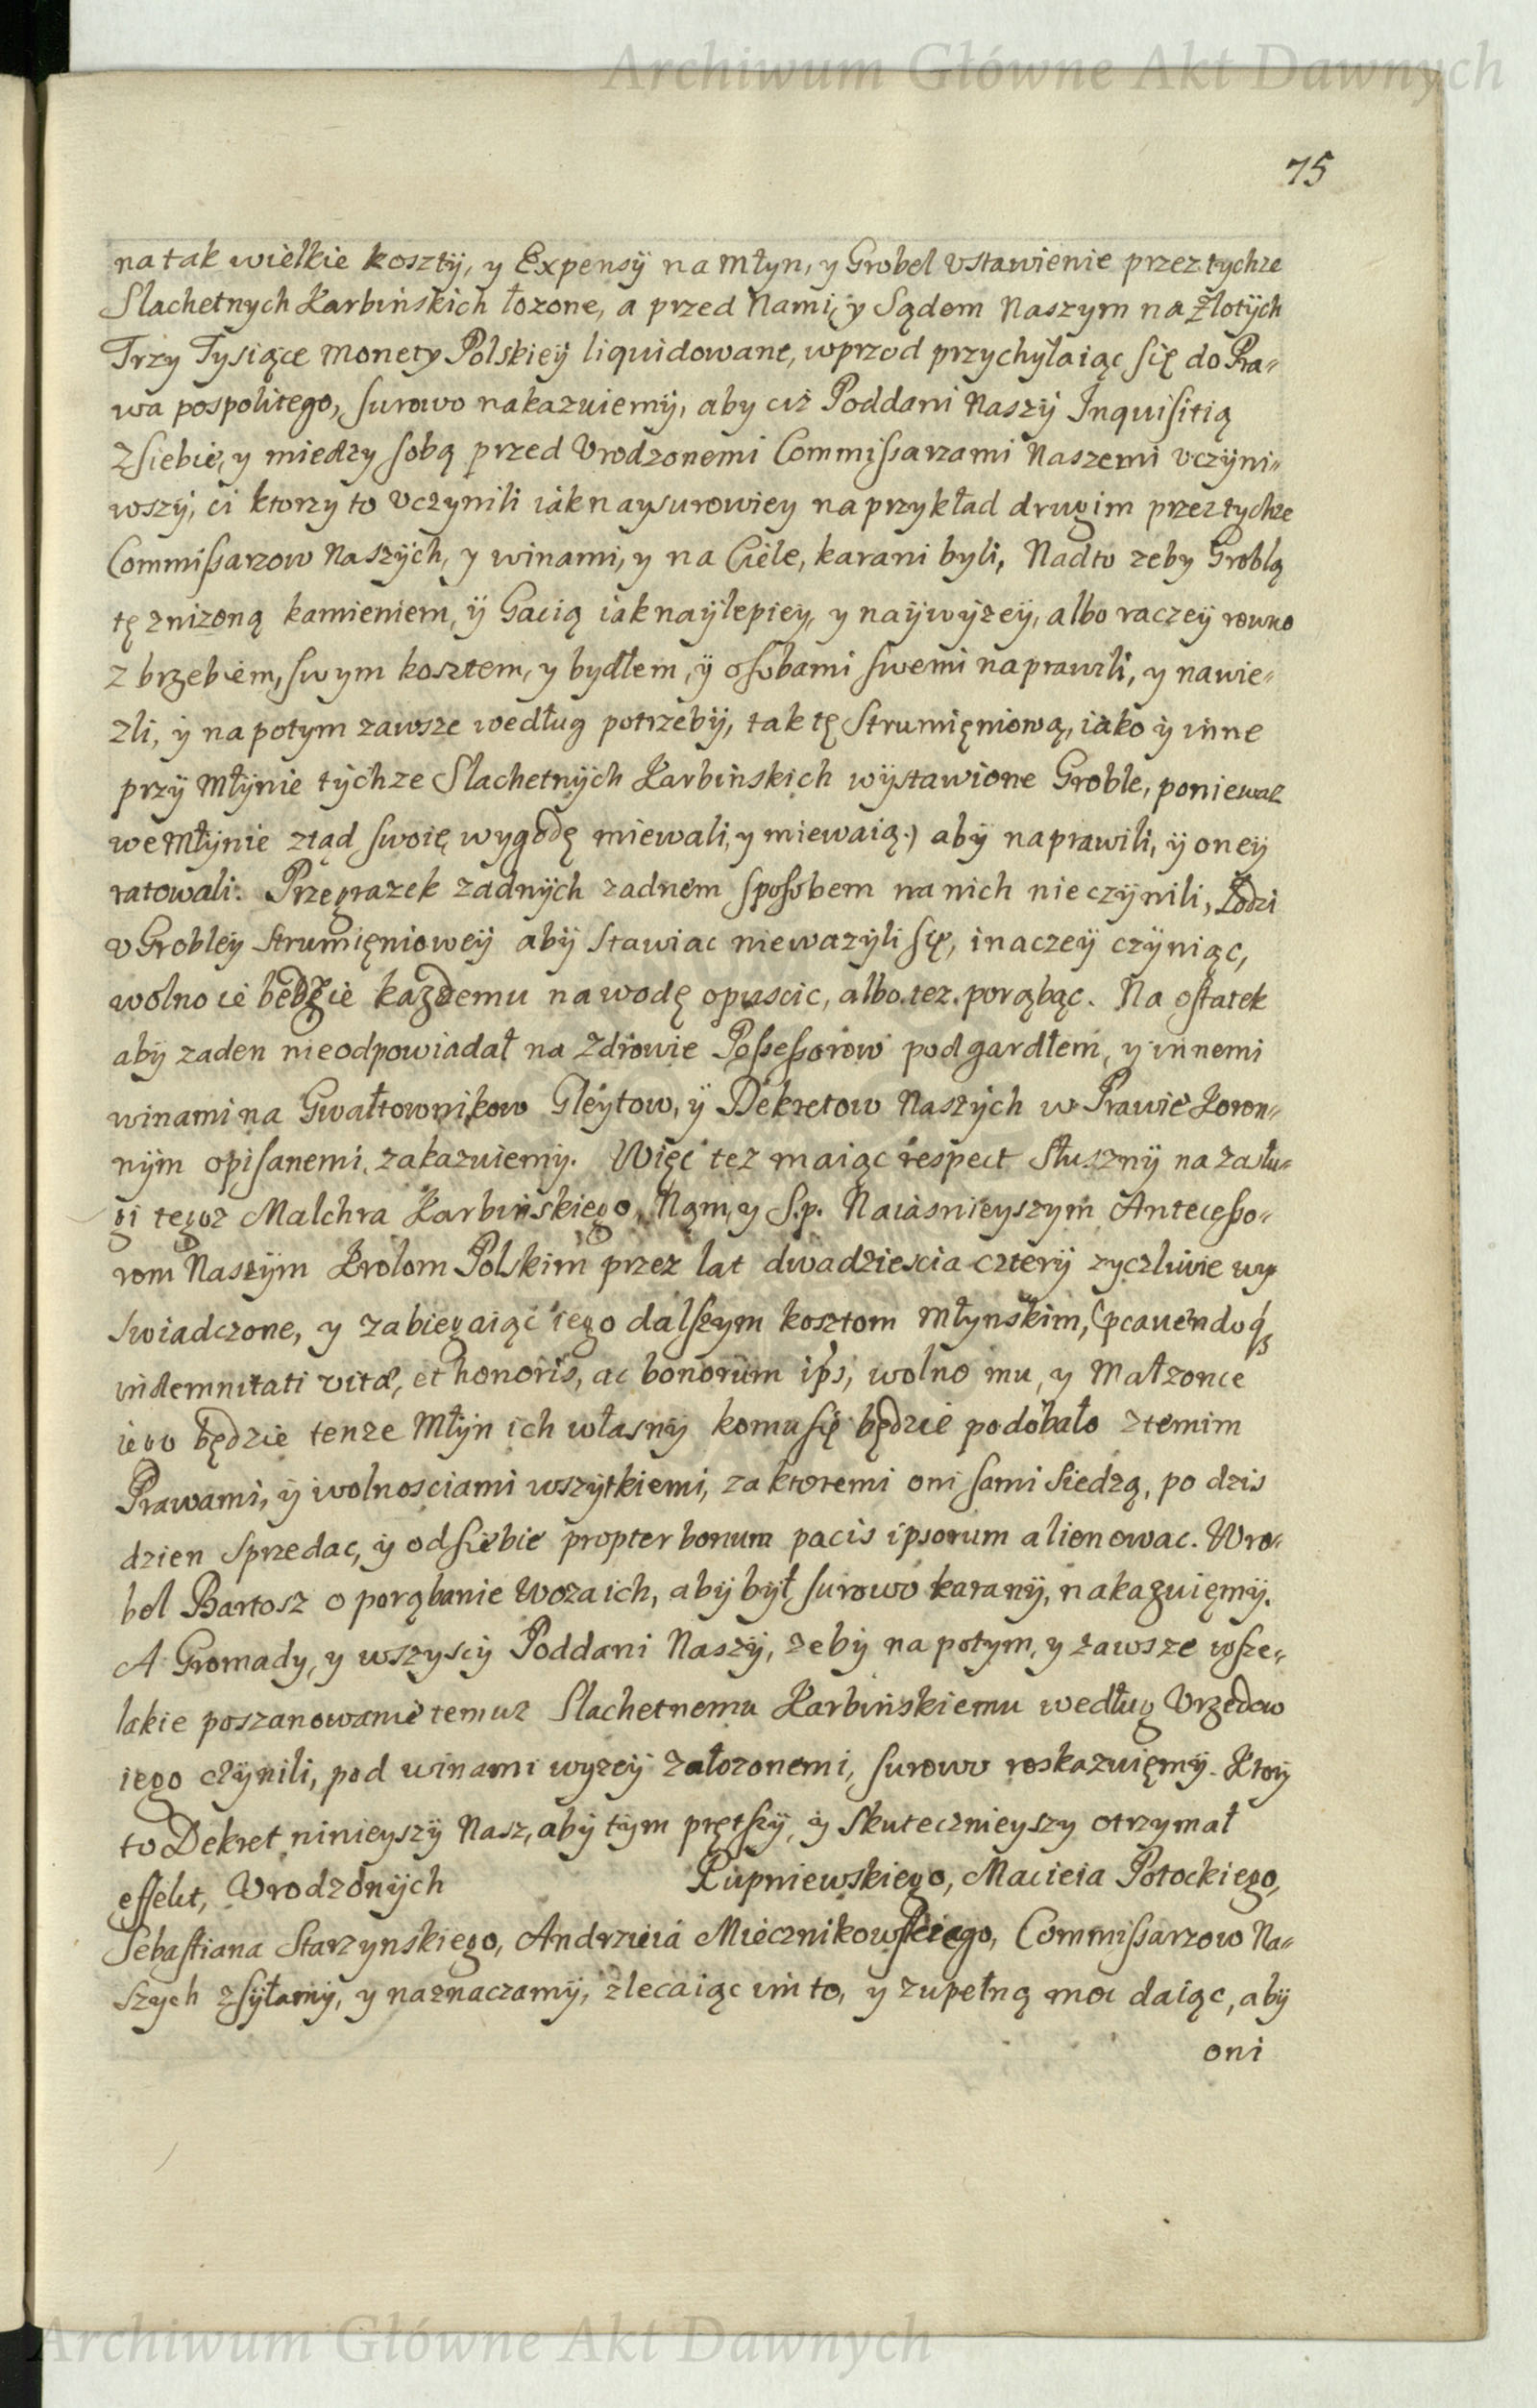 Archiwum Główne Akt Dawnych
75
na tak wielkie koszty, y Expensy na Młyn, y Grobel vstawienie przez tychze
Slachetnych Karbińskich łozone, a przed Nami, y Sądem Naszym na Złotych
Trzy Tysiące Monety Polskiey liquidowane, wprzod przychylaiąc się do Pra-
wa pospolitego, surowo nakazuiemy, aby ciż Poddani Naszy Inquisitią
z siebie, y miedzy sobą przed Vrodzonemi Commissarzami Naszemi vczyni-
wszy, ci ktorzy to vczynili iak naysurowiey na przykład drugim przez tychze
Commissarzow Naszych, y winami, y na Ciele, karani byli, Nadto zeby Groblą
tę znizoną kamieniem, y Gacią iak naylepiey, y naywyzey, albo raczey rowno
z brzebiem, swym kosztem, y bydłem, y osobami swemi naprawili, y nawie-
zli, y napotym zawsze według potrzeby, tak tę Strumięniową, iako y inne
przy Młynie tychze Slachetnych Karbińskich wystawione Groble, poniewaz
we Młynie ztąd swoię wygodę miewali, y miewaią) aby naprawili, y oney
ratowali: Przegrazek zadnych zadnem sposobem na nich nie czynili, Łodzi
v Grobley Strumięniowey aby stawiac niewazyli się, inaczey czyniąc,
wolno ie bedzie kazdemu na wodę opuscic, albo tez porąbąc. Na ostatek
aby zaden nieodpowiadał na Zdrowie Possessorow pod gardłem, y innemi
winami na Gwałtownikow Gleytow, y Dekretow Naszych w Prawie Koron-
nym opisanemi zakazuiemy. Więc tez maiąc respect słuszny na zasłu-
gi tegoz Malchra Karbińskiego, Nam, y S.p. Naiasnieyszym Antecesso-
rom Naszym Krolom Polskim przez lat dwadziescia cztery zyczliwie wy
swiadczone, y zabiegaiąc iego dalszym kosztom Młynskim, pcauendoq
indemnitati vitæ, et honoris, ac bonorum ips, wolno mu, y Małzonce
iego będzie tenze Młyn ich własny komu się będzie podobało z temim
Prawami, y wolnosciami wszytkiemi, za ktoremi oni sami siedzą, po dzis
dzien sprzedac, y od siebie propter bonum pacis ipsorum alionowac. Wro-
bel Bartosz o porąbanie Woza ich, aby był surowo karany, nakazuięmy.
A Gromady, y wszyscy Poddani Naszy, zeby napotym, y zawsze wsze-
lakie poszanowanie temuz Slachetnemu Karbińskiemu według Vrzedow
iego czynili, pod winami wyzey załozonemi, surowo roskazuięmy. Ktory
to Dekret ninieyszy Nasz, aby tym prętszy, y skutecznieyszy otrzymał
effekt, Vrodzonych Rupniewskiego, Macieia Potockiego,
Sebastiana Starzynskiego, Andrzeia Miecznikowskiego, Commissarzow Na-
szych zsyłamy, y naznaczamy, zlecaiąc im to, y zupełną moc daiąc, aby
oni
Archiwum Główne Akt Dawnych